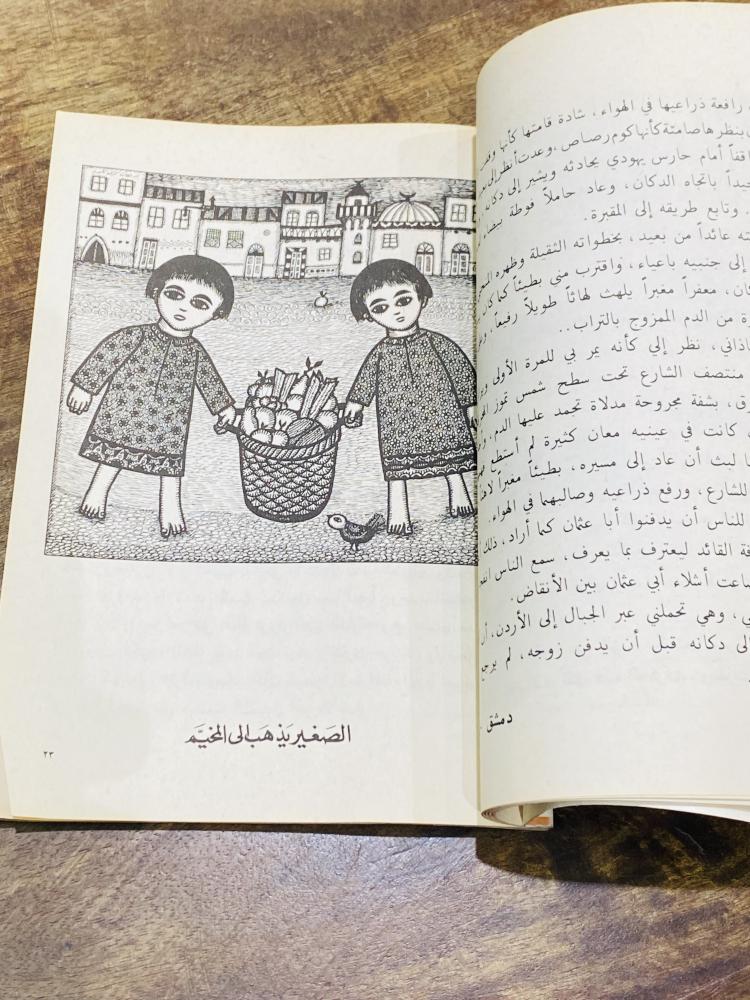 رافعة ذراعيها في الهواء، شادة قامتها كأنها
ينظرها صامتة كأنها كوم رصاص، وعدت أنظر إلى
أمام حارس يهودي يحادثه ويشير إلى دكانه
باتجاه الدكان، وعاد حاملاً فوطة بيضاء
وتابع طريقه إلى المقبرة.
عائداً من بعيد، بخطواته الثقيلة وظهره
إلى جنبيه باعياء، واقترب مني بطيئاً كما كان
معفراً مغبراً يلهث لهاثاً طويلاً رفيعاً
من الدم الممزوج بالتراب..
نظر إلي كأنه يمر بي للمرة الأولى
منتصف الشارع تحت سطح شمس تموز
بشفة مجروحة مدلاة تجمد عليها الدم.
كانت في عينيه معان كثيرة لم أستطع
لبث أن عاد إلى مسيره، بطيئاً مغبراً
للشارع، ورفع ذراعيه وصالبهما في الهواء.
للناس أن يدفنوا أبا عثمان كما أراد، ذلك
القائد ليعترف بما يعرف، سمع الناس
أشلاء أبي عثمان بين الأنقاض.
وهي تحملني عبر الجبال إلى الأردن، أن
دكانه قبل أن يدفن زوجه، لم يرجع
دمشق
الصغير يذهب الى المخيّم
٢٣